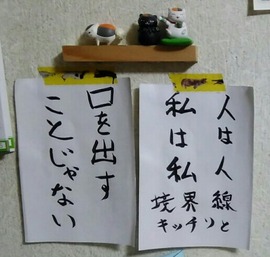 人は人
私は私
境界線
キッチリと
口を出す
ことじゃない